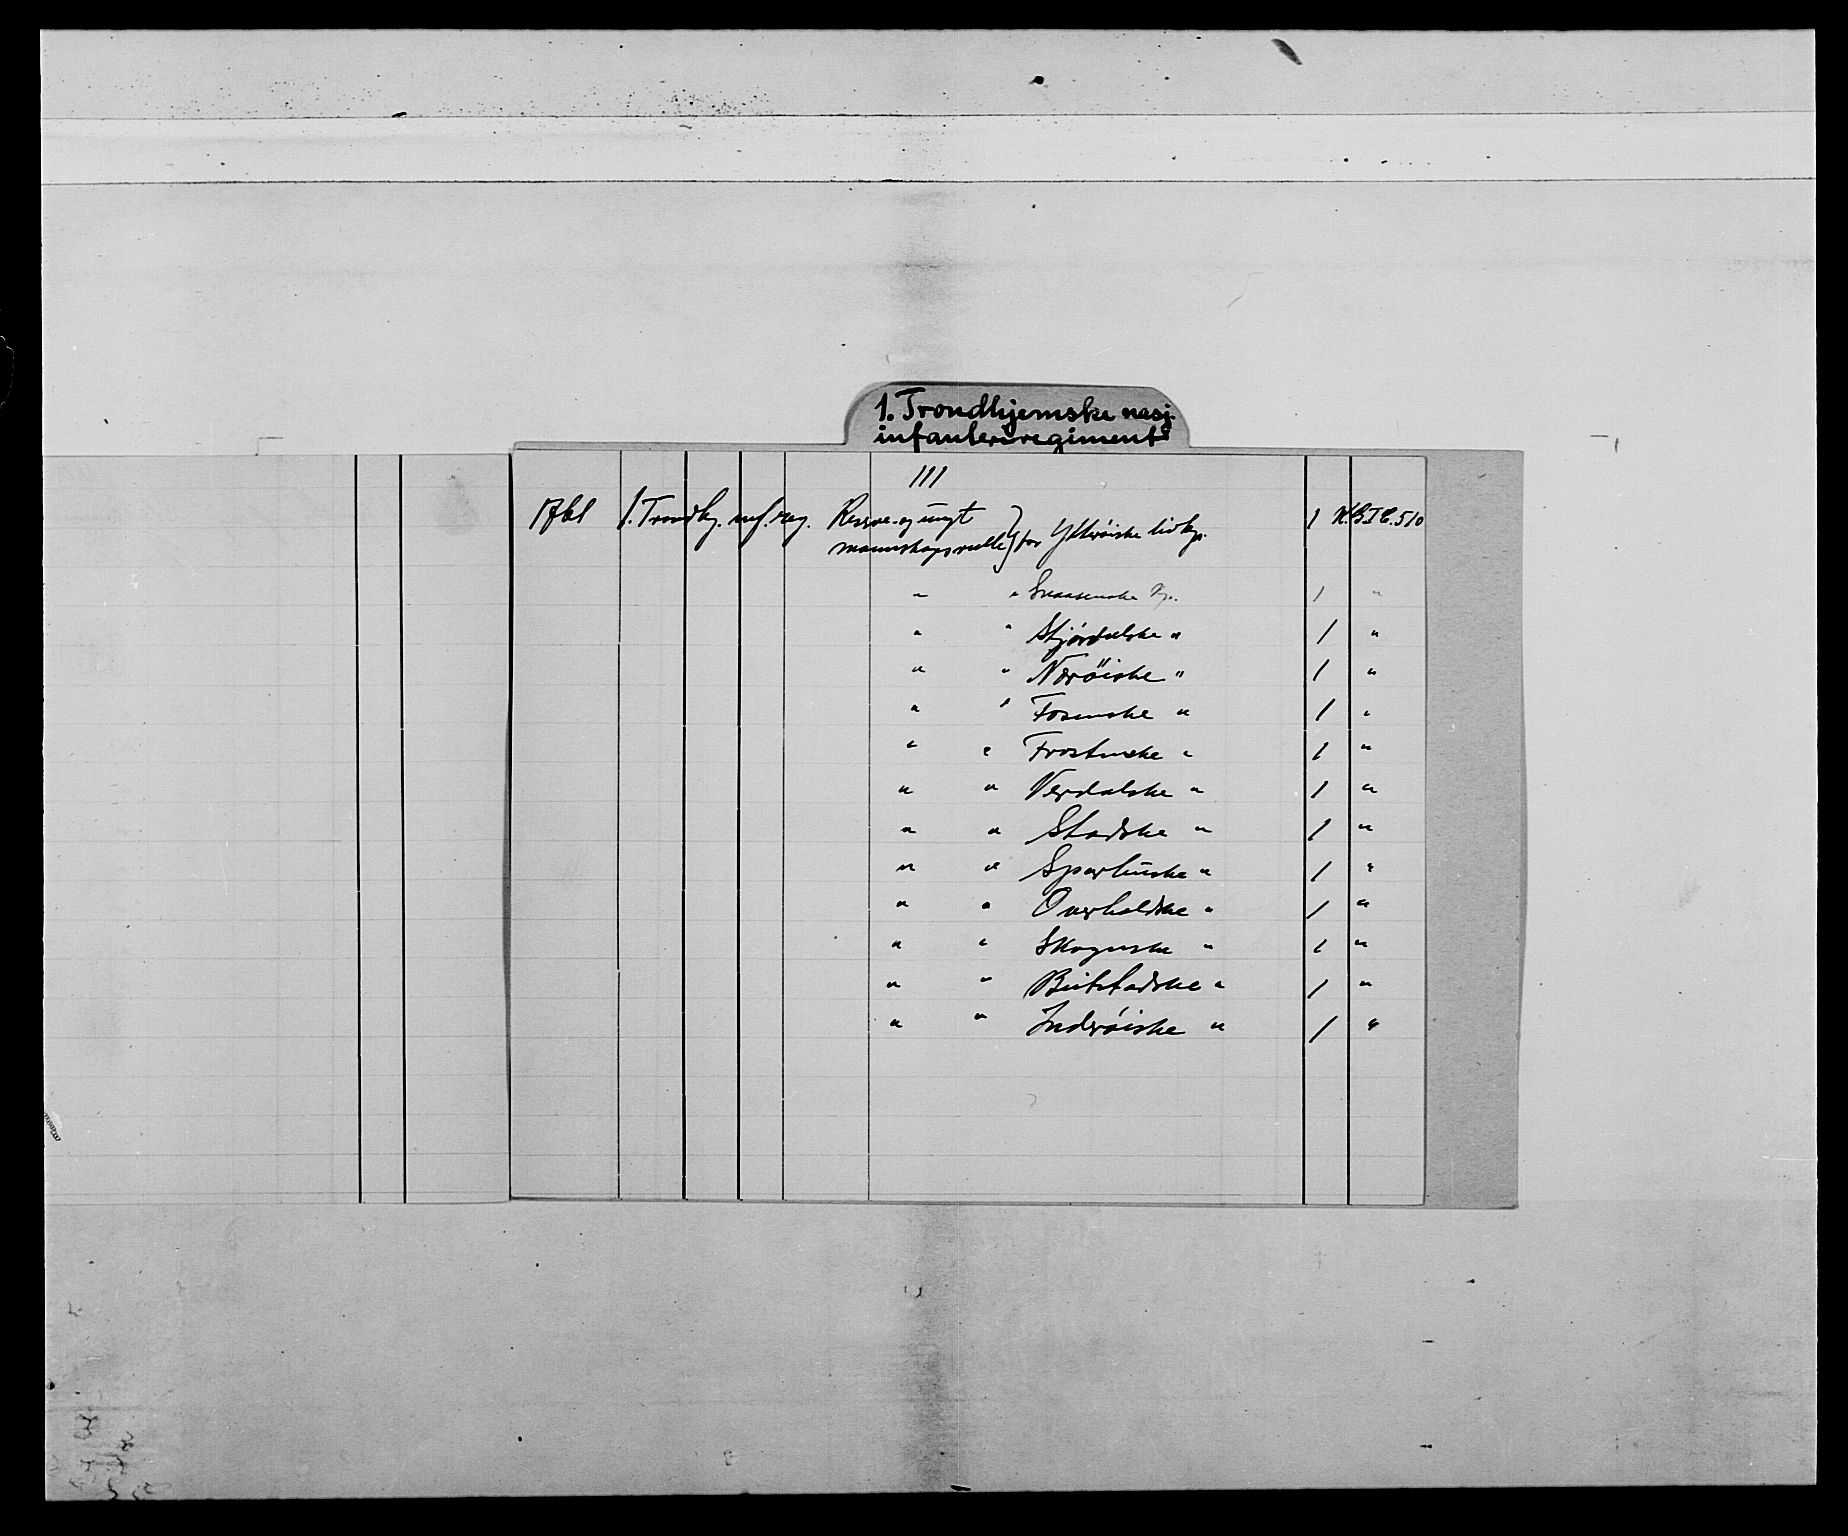 1. Trondhjemske nasj.
infanteriregiment
111
1761 1. Trondhj. inf. reg. Reserve- og ungt mannskapsrulle } for Ytterøiske livkp. 1 K.B.I.C. 510
" " Snaasenske Kp. 1 "
" " Stjördalske " 1 "
" " Næröiske " 1 "
" " Fosenske " 1 "
" " Frostenske " 1 "
" " Verdalske " 1 "
" " Stodske " 1 "
" " Sparbuske " 1 "
" " Overhaldske " 1 "
" " Skognske " 1 "
" " Beitstadske " 1 "
" " Inderöiske " 1 "